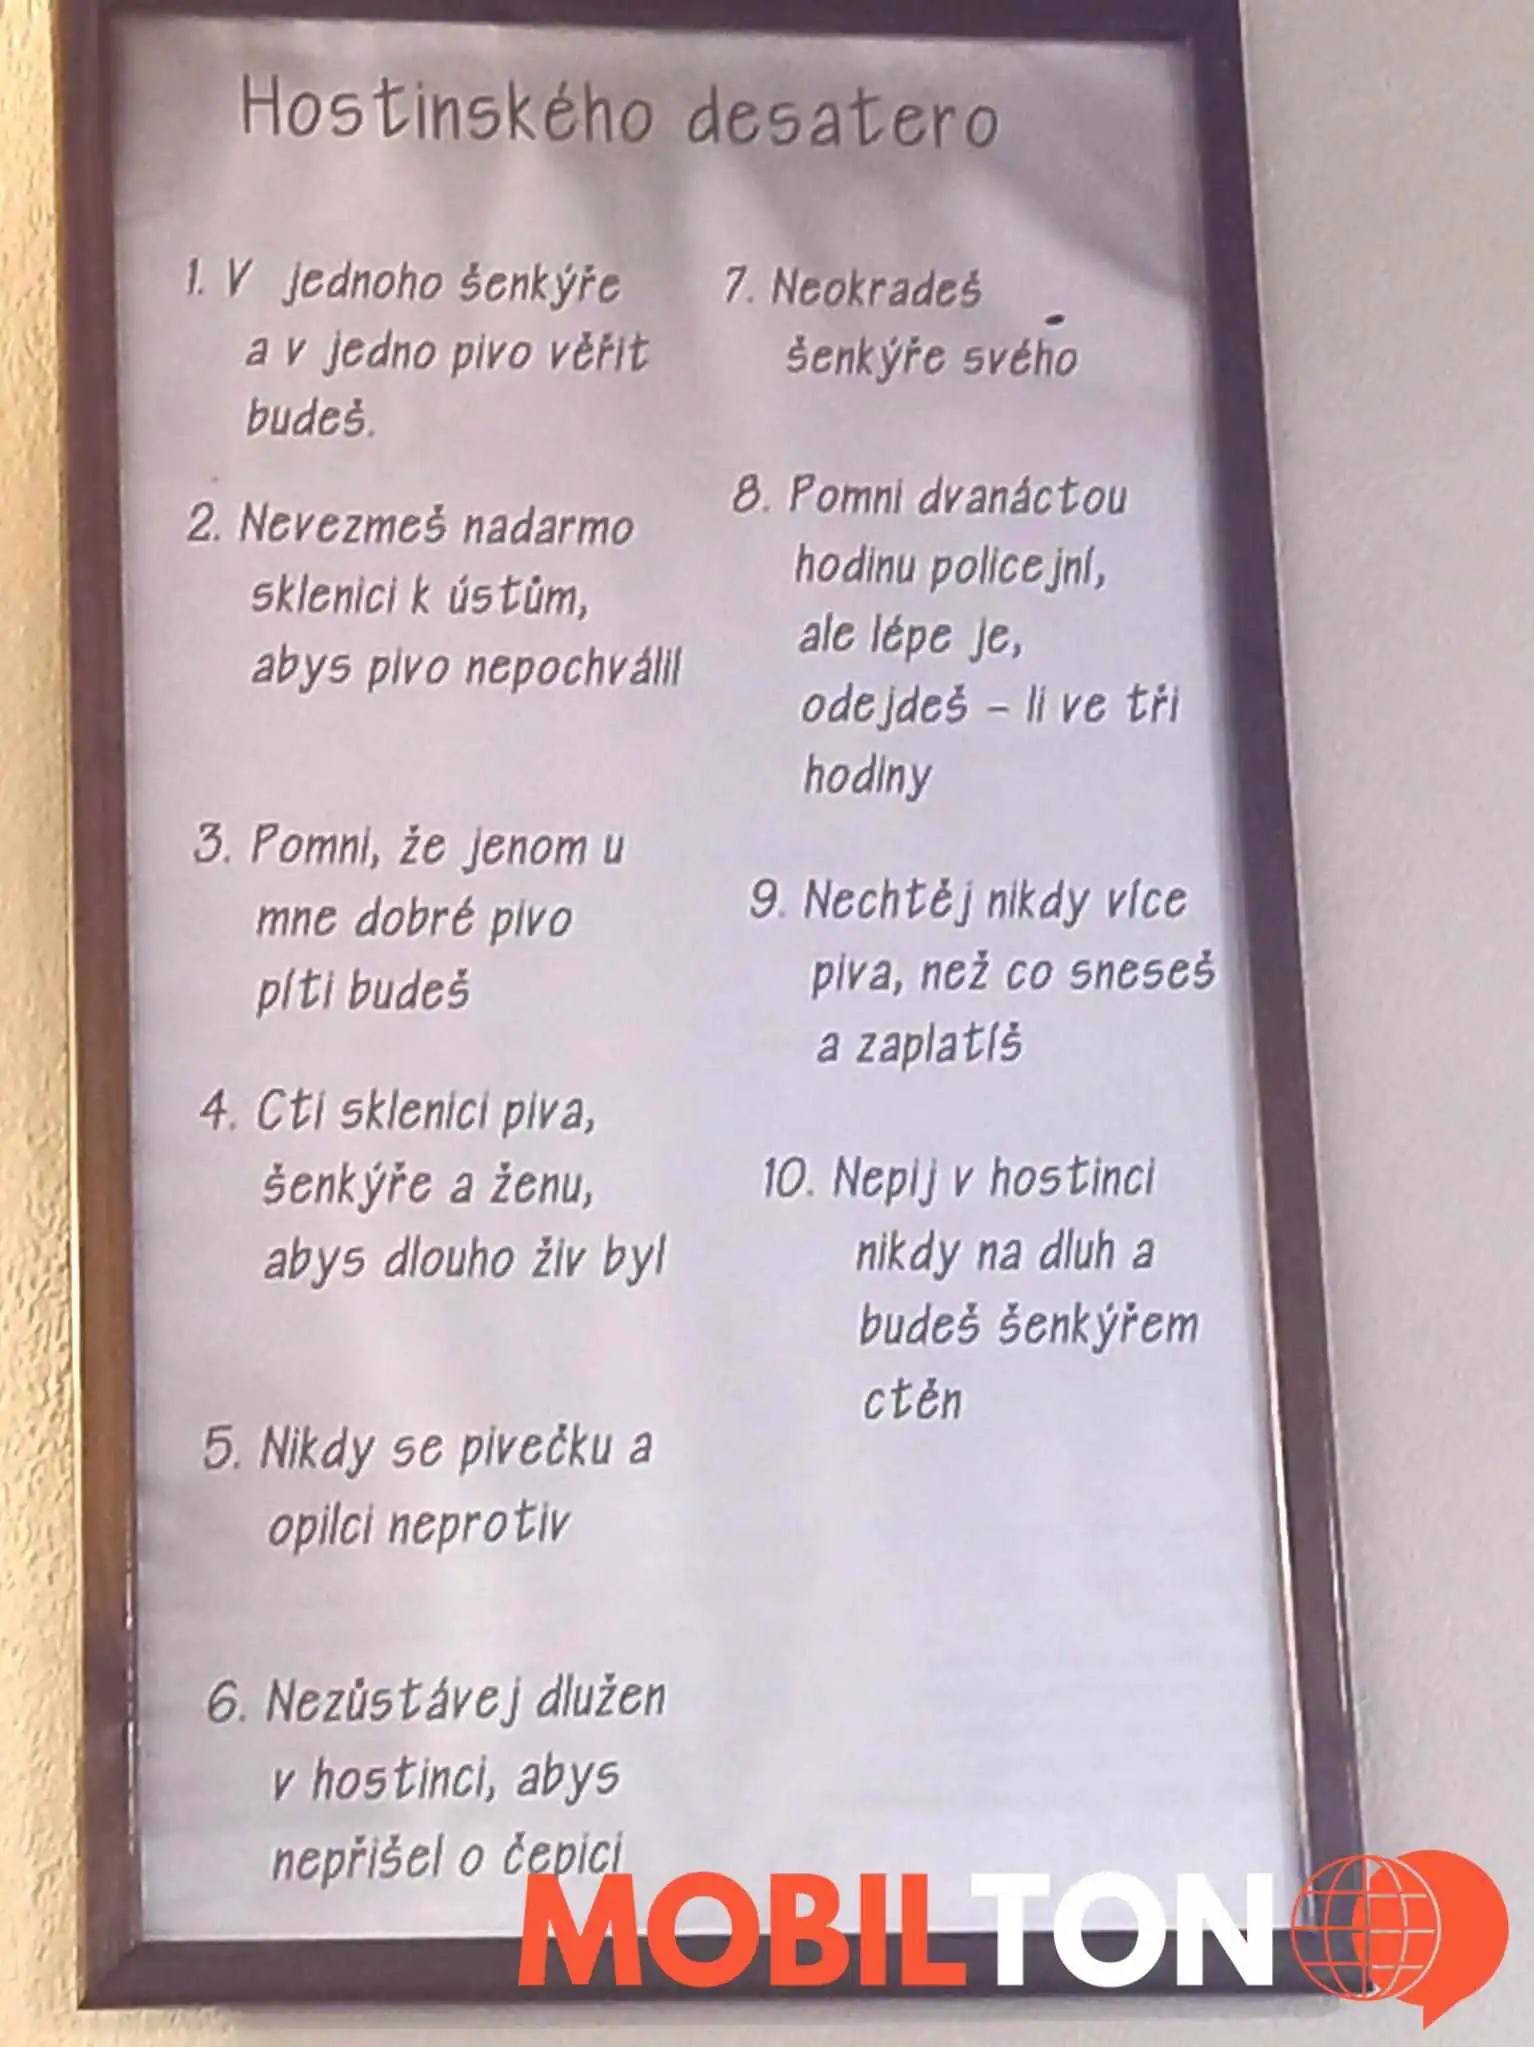 Hostinského desatero
1. V jednoho šenkýře
a v jedno pivo věřit
budeš.
2. Nevezmeš nadarmo
sklenici k ústům,
abys pivo nepochválil
3. Pomni, že jenom u
mne dobré pivo
píti budeš
4. Cti sklenici piva,
šenkýře a ženu,
abys dlouho živ byl
5. Nikdy se pivečku a
opilci neprotiv
6. Nezůstávej dlužen
v hostinci, abys
nepřišel o čepici
7. Neokradeš
šenkýře svého
8. Pomni dvanáctou
hodinu policejní,
ale lépe je,
odejdeš – li ve tři
hodiny
9. Nechtěj nikdy více
piva, než co sneseš
a zaplatíš
10. Nepij v hostinci
nikdy na dluh a
budeš šenkýřem
ctěn
MOBILTON